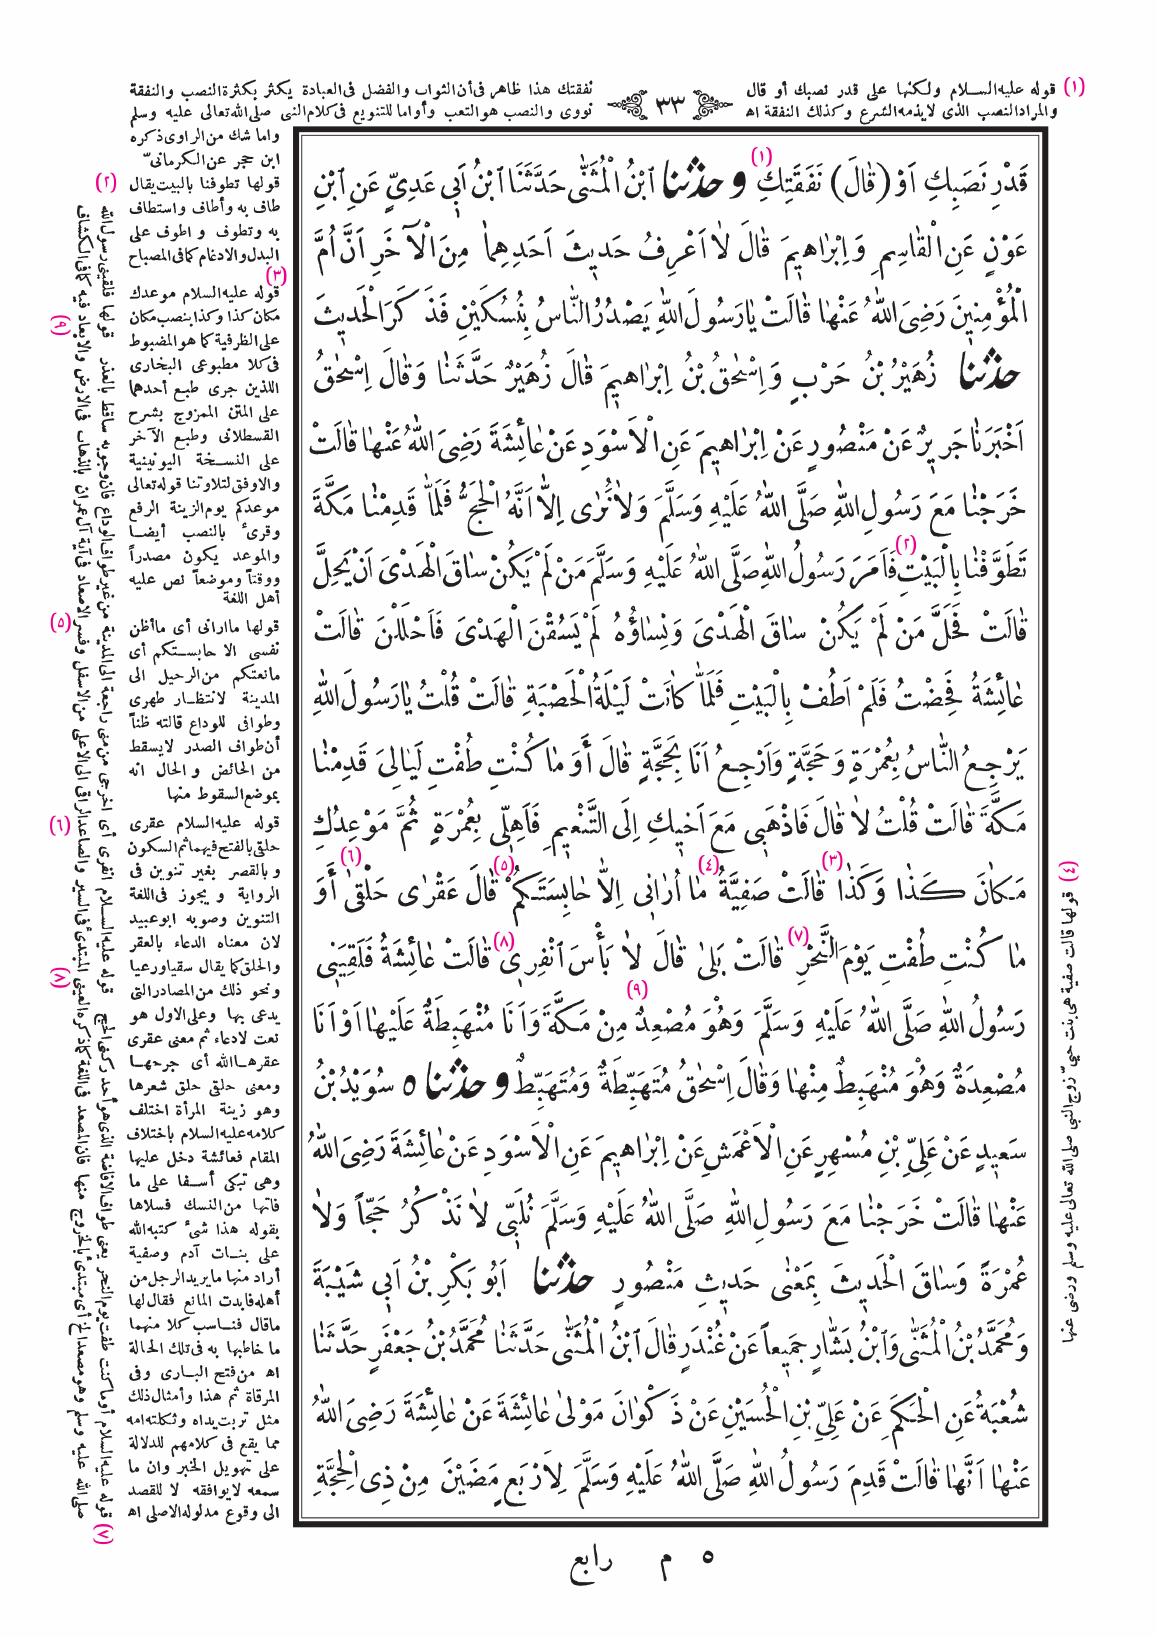 (١) قوله عليه السلام ولكنها على قدر نصبك أو قال
٣٣
نفقتك هذا ظاهر فى أن الثواب والفضل فى العبادة يكثر بكثرة النصب والنفقة
والمراد النصب الذى لا يذمه الشرع وكذلك النفقة اه
نووى والنصب هو التعب وأو اما للتنويع فى كلام النبى صلى الله تعالى عليه وسلم
واما شك من الراوى ذكره
ابن حجر عن الكرمانى
قَدْرِ نَصَبِكِ اَوْ (قَالَ) نَفَقَتِكِ (١) و حدثنا ابْنُ الْمُثَنّٰى حَدَّثَنَا ابْنُ اَبِى عَدِيٍّ عَنِ ابْنِ
عَوْنٍ عَنِ الْقَاسِمِ وَاِبْرَاهِيمَ قَالَ لَا اَعْرِفُ حَدِيثَ اَحَدِهِمَا مِنَ الْآخَرِ اَنَّ اُمَّ
الْمُؤْمِنِينَ رَضِىَ اللهُ عَنْهَا قَالَتْ يَا رَسُولَ اللهِ يَصْدُرُ النَّاسُ بِنُسُكَيْنِ فَذَكَرَ الْحَدِيثَ
حدثنا زُهَيْرُ بْنُ حَرْبٍ وَاِسْحٰقُ بْنُ اِبْرَاهِيمَ قَالَ زُهَيْرٌ حَدَّثَنَا وَقَالَ اِسْحٰقُ
اَخْبَرَنَا جَرِيرٌ عَنْ مَنْصُورٍ عَنْ اِبْرَاهِيمَ عَنِ الْاَسْوَدِ عَنْ عَائِشَةَ رَضِىَ اللهُ عَنْهَا قَالَتْ
خَرَجْنَا مَعَ رَسُولِ اللهِ صَلَّى اللهُ عَلَيْهِ وَسَلَّمَ وَلَا نُرٰى اِلَّا اَنَّهُ الْحَجُّ فَلَمَّا قَدِمْنَا مَكَّةَ
تَطَوَّفْنَا بِالْبَيْتِ (٢) فَاَمَرَ رَسُولُ اللهِ صَلَّى اللهُ عَلَيْهِ وَسَلَّمَ مَنْ لَمْ يَكُنْ سَاقَ الْهَدْىَ اَنْ يَحِلَّ
قَالَتْ فَحَلَّ مَنْ لَمْ يَكُنْ سَاقَ الْهَدْىَ وَنِسَاؤُهُ لَمْ يَسُقْنَ الْهَدْىَ فَاَحْلَلْنَ قَالَتْ
عَائِشَةُ فَحِضْتُ فَلَمْ اَطُفْ بِالْبَيْتِ فَلَمَّا كَانَتْ لَيْلَةُ الْحَصْبَةِ قَالَتْ قُلْتُ يَا رَسُولَ اللهِ
يَرْجِعُ النَّاسُ بِعُمْرَةٍ وَحَجَّةٍ وَاَرْجِعُ اَنَا بِحَجَّةٍ قَالَ أَوَ مَا كُنْتِ طُفْتِ لَيَالِىَ قَدِمْنَا
مَكَّةَ قَالَتْ قُلْتُ لَا قَالَ فَاذْهَبِى مَعَ اَخِيكِ اِلَى التَّنْعِيمِ فَاَهِلِّى بِعُمْرَةٍ ثُمَّ مَوْعِدُكِ
مَكَانَ كَذَا وَكَذَا (٣) قَالَتْ صَفِيَّةُ (٤) مَا اُرَانِى اِلَّا حَابِسَتَكُمْ (٥) قَالَ عَقْرٰى حَلْقٰى (٦) أَوَ
مَا كُنْتِ طُفْتِ يَوْمَ النَّحْرِ (٧) قَالَتْ بَلٰى قَالَ لَا بَأْسَ انْفِرِى (٨) قَالَتْ عَائِشَةُ فَلَقِيَنِى
رَسُولُ اللهِ صَلَّى اللهُ عَلَيْهِ وَسَلَّمَ وَهُوَ مُصْعِدٌ (٩) مِنْ مَكَّةَ وَاَنَا مُنْهَبِطَةٌ عَلَيْهَا اَوْ اَنَا
مُصْعِدَةٌ وَهُوَ مُنْهَبِطٌ مِنْهَا وَقَالَ اِسْحٰقُ مُتَهَبِّطَةٌ وَمُتَهَبِّطٌ و حدثنا ٥ سُوَيْدُ بْنُ
سَعِيدٍ عَنْ عَلِيِّ بْنِ مُسْهِرٍ عَنِ الْاَعْمَشِ عَنْ اِبْرَاهِيمَ عَنِ الْاَسْوَدِ عَنْ عَائِشَةَ رَضِىَ اللهُ
عَنْهَا قَالَتْ خَرَجْنَا مَعَ رَسُولِ اللهِ صَلَّى اللهُ عَلَيْهِ وَسَلَّمَ نُلَبِّى لَا نَذْكُرُ حَجّاً وَلَا
عُمْرَةً وَسَاقَ الْحَدِيثَ بِمَعْنٰى حَدِيثِ مَنْصُورٍ حدثنا اَبُو بَكْرِ بْنُ اَبِى شَيْبَةَ
وَمُحَمَّدُ بْنُ الْمُثَنّٰى وَابْنُ بَشَّارٍ جَمِيعاً عَنْ غُنْدَرٍ قَالَ ابْنُ الْمُثَنّٰى حَدَّثَنَا مُحَمَّدُ بْنُ جَعْفَرٍ حَدَّثَنَا
شُعْبَةُ عَنِ الْحَكَمِ عَنْ عَلِيِّ بْنِ الْحُسَيْنِ عَنْ ذَكْوَانَ مَوْلٰى عَائِشَةَ عَنْ عَائِشَةَ رَضِىَ اللهُ
عَنْهَا اَنَّهَا قَالَتْ قَدِمَ رَسُولُ اللهِ صَلَّى اللهُ عَلَيْهِ وَسَلَّمَ لِاَرْبَعٍ مَضَيْنَ مِنْ ذِى الْحِجَّةِ
(٢) قولها تطوفنا بالبيت يقال
طاف به وأطاف واستطاف
به وتطوف و اطوف على
البدل والادغام كما فى المصباح
(٣) قوله عليه السلام موعدك
مكان كذا وكذا بنصب مكان
على الظرفية كما هو المضبوط
فى كلا مطبوعى البخارى
اللذين جرى طبع أحدهما
على المتن الممزوج بشرح
القسطلانى وطبع الآخر
على النسخة اليونينية
والاوفق لتلاوتنا قوله تعالى
موعدكم يوم الزينة الرفع
وقرىء بالنصب أيضا
والموعد يكون مصدراً
ووقتاً وموضعاً نص عليه
أهل اللغة
(٥) قولها ما ارانى أى ما أظن
نفسى الا حابستكم أى
مانعتكم من الرحيل الى
المدينة لانتظار طهرى
وطوافى للوداع قالته ظناً
أن طواف الصدر لا يسقط
من الحائض والحال انه
بموضع السقوط منها
(٦) قوله عليه السلام عقرى
حلقى بالفتح فيهما ثم السكون
وبالقصر بغير تنوين فى
الرواية و يجوز فى اللغة
التنوين وصوبه ابو عبيد
لان معناه الدعاء بالعقر
والحلق كما يقال سقيا ورعيا
ونحو ذلك من المصادر التى
يدعى بها وعلى الاول هو
نعت لا دعاء ثم معنى عقرى
عقرها الله أى جرحها
ومعنى حلقى حلق شعرها
وهو زينة المرأة اختلف
كلامه عليه السلام باختلاف
المقام فعائشة دخل عليها
وهى تبكى أسفا على ما
فاتها من النسك فسلاها
بقوله هذا شىء كتبه الله
على بنات آدم وصفية
أراد منها ما يريد الرجل من
أهله فابدت المانع فقال لها
ما قال فناسب كلا منهما
ما خاطبها به فى تلك الحالة
اه من فتح البارى وفى
المرقاة ثم هذا وأمثال ذلك
مثل تربت يداه وثكلته امه
مما يقع فى كلامهم للدلالة
على تهويل الخبر وان ما
سمعه لا يوافقه لا للقصد
الى وقوع مدلوله الاصلى اه
(٤) قولها قالت صفية هى بنت حيي زوج النبى صلى الله تعالى عليه وسلم ورضى عنها
(٧) قوله عليه السلام أوما كنت طفت يوم النحر يعنى طواف الافاضة الذى هو أحد ركنى الحج (٨) قوله عليه السلام انفرى أى اخرجى من منى راجعة الى المدينة من غير طواف الوداع فان وجوبه ساقط بالعذر (٩) قولها فلقينى رسول الله
صلى الله عليه وسلم وهو مصعد الخ أى مبتدئ بالخروج منها فان المصعد فى اللغة كما ذكره العينى المبتدئ فى السير والصاعد الراقى الى الاعلى من الاسفل وفسر الاصعاد فى آية آل عمران بالذهاب فى الارض والابعاد فيه كما فى الكشاف
٥ م رابع